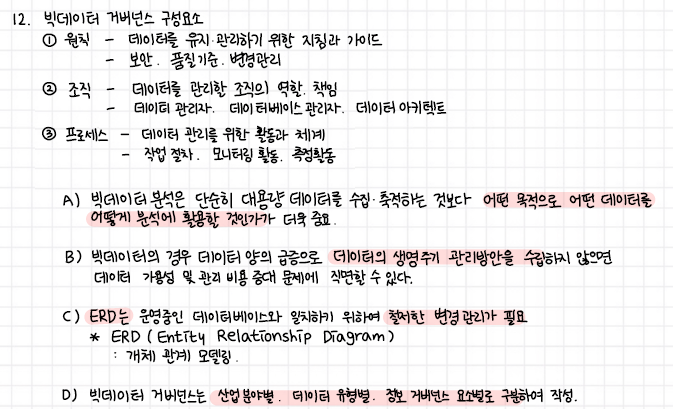 12. 빅데이터 거버넌스 구성요소
① 원칙 - 데이터를 유지·관리하기 위한 지침과 가이드
- 보안. 품질기준. 변경관리
② 조직 - 데이터를 관리할 조직의 역할. 책임
- 데이터 관리자. 데이터베이스 관리자. 데이터 아키텍트
③ 프로세스 - 데이터 관리를 위한 활동과 체계
- 작업 절차. 모니터링 활동. 측정활동
A) 빅데이터 분석은 단순히 대용량 데이터를 수집·축적하는 것보다 어떤 목적으로 어떤 데이터를
어떻게 분석에 활용할 것인가가 더욱 중요.
B) 빅데이터의 경우 데이터 양의 급증으로 데이터의 생명주기 관리방안을 수립하지 않으면
데이터 가용성 및 관리 비용 증대 문제에 직면할 수 있다.
C) ERD는 운영중인 데이터베이스와 일치하기 위하여 철저한 변경관리가 필요
* ERD (Entity Relationship Diagram)
: 개체 관계 모델링.
D) 빅데이터 거버넌스는 산업분야별. 데이터 유형별. 정보 거버넌스 요소별로 구분하여 작성.